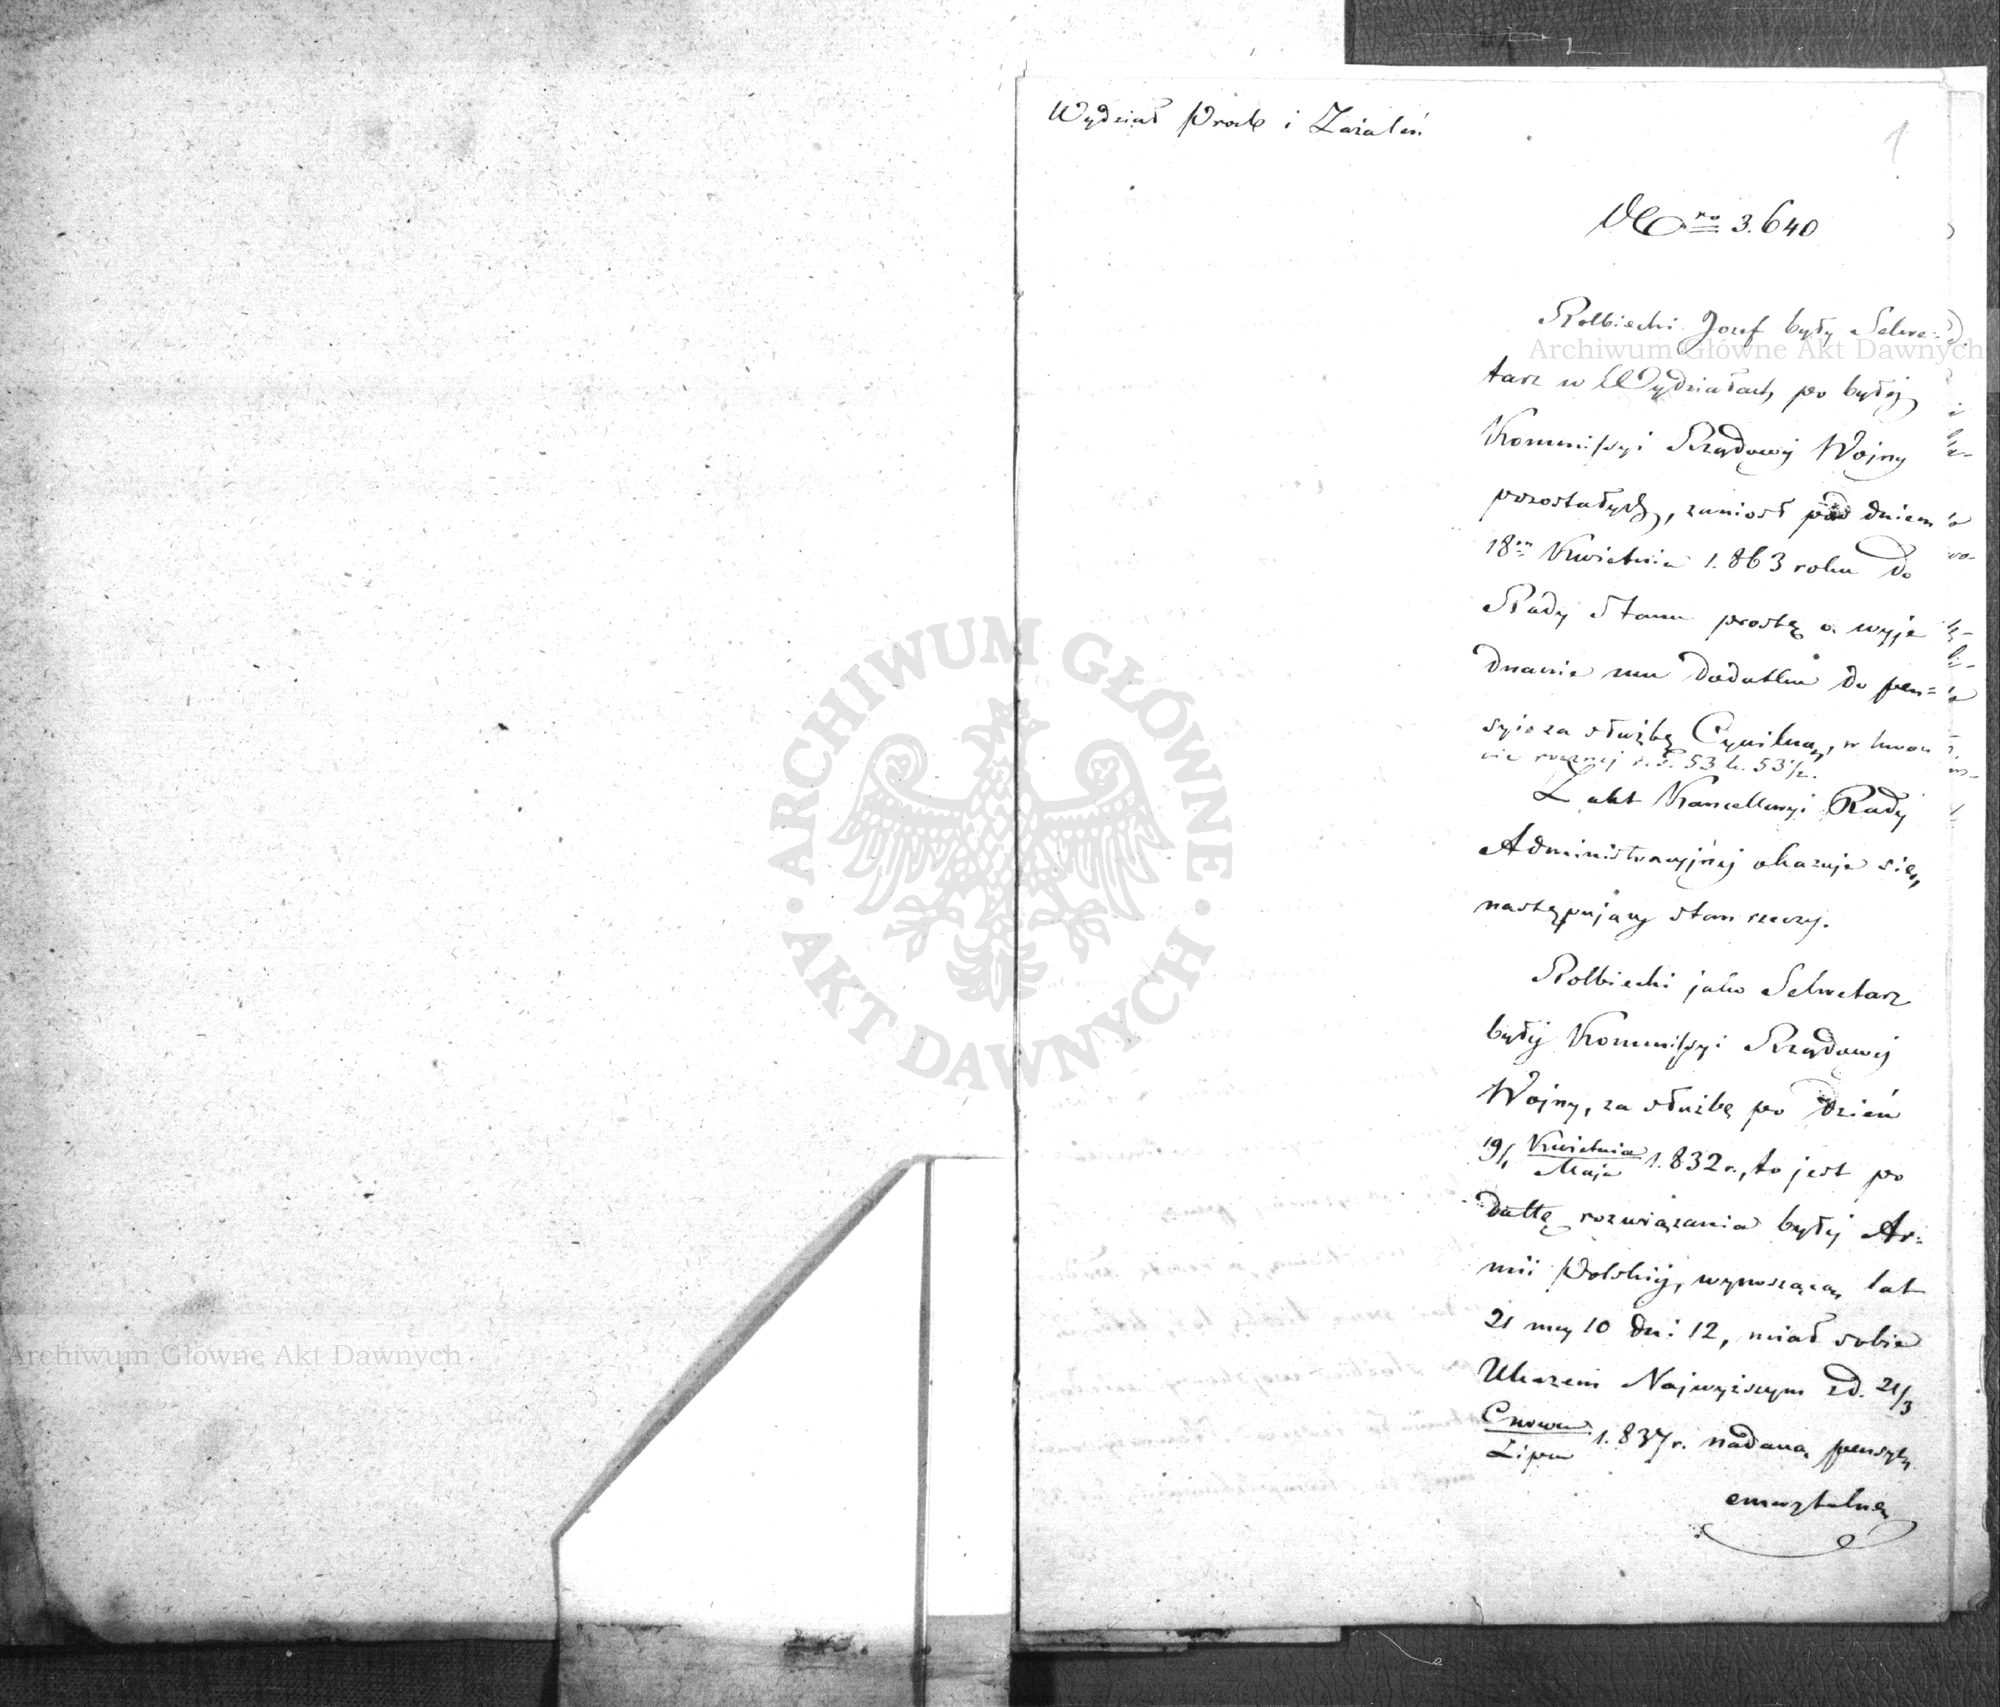 Wydział Prośb i Zażaleń
1
Nro 3.640
Rolbiecki Jozef były Sekre=
tarz w Wydziałach po byłej
Kommissyi Rządowej Wojny
pozostałych, zaniosł pod dniem
18m Kwietnia 1.863 roku do
Rady Stanu prosbę o wyje
dnanie mu dodatku do pen=
syi za służbę Cywilną, w kwo
cie rocznej r.s. 53 k. 53½.
Z akt Kancellaryi Rady
Administracyjnej okazuje się,
następujący stan rzeczy.
Rolbiecki jako Sekretarz
byłej Kommissyi Rządowej
Wojny, za służbę po dzień
19/1 Kwietnia/Maja 1.832 r., to jest po
dattę rozwiązania byłej Ar=
mii Polskiej, wynoszącą lat
21 mcy 10 dni 12, miał sobie
Ukazem Najwyższym z d. 21/3
Czerwca/Lipca 1.837 r. nadaną pensyę
emerytalną
ARCHIWUM GŁÓWNE AKT DAWNYCH
Archiwum Główne Akt Dawnych
Archiwum Główne Akt Dawnych